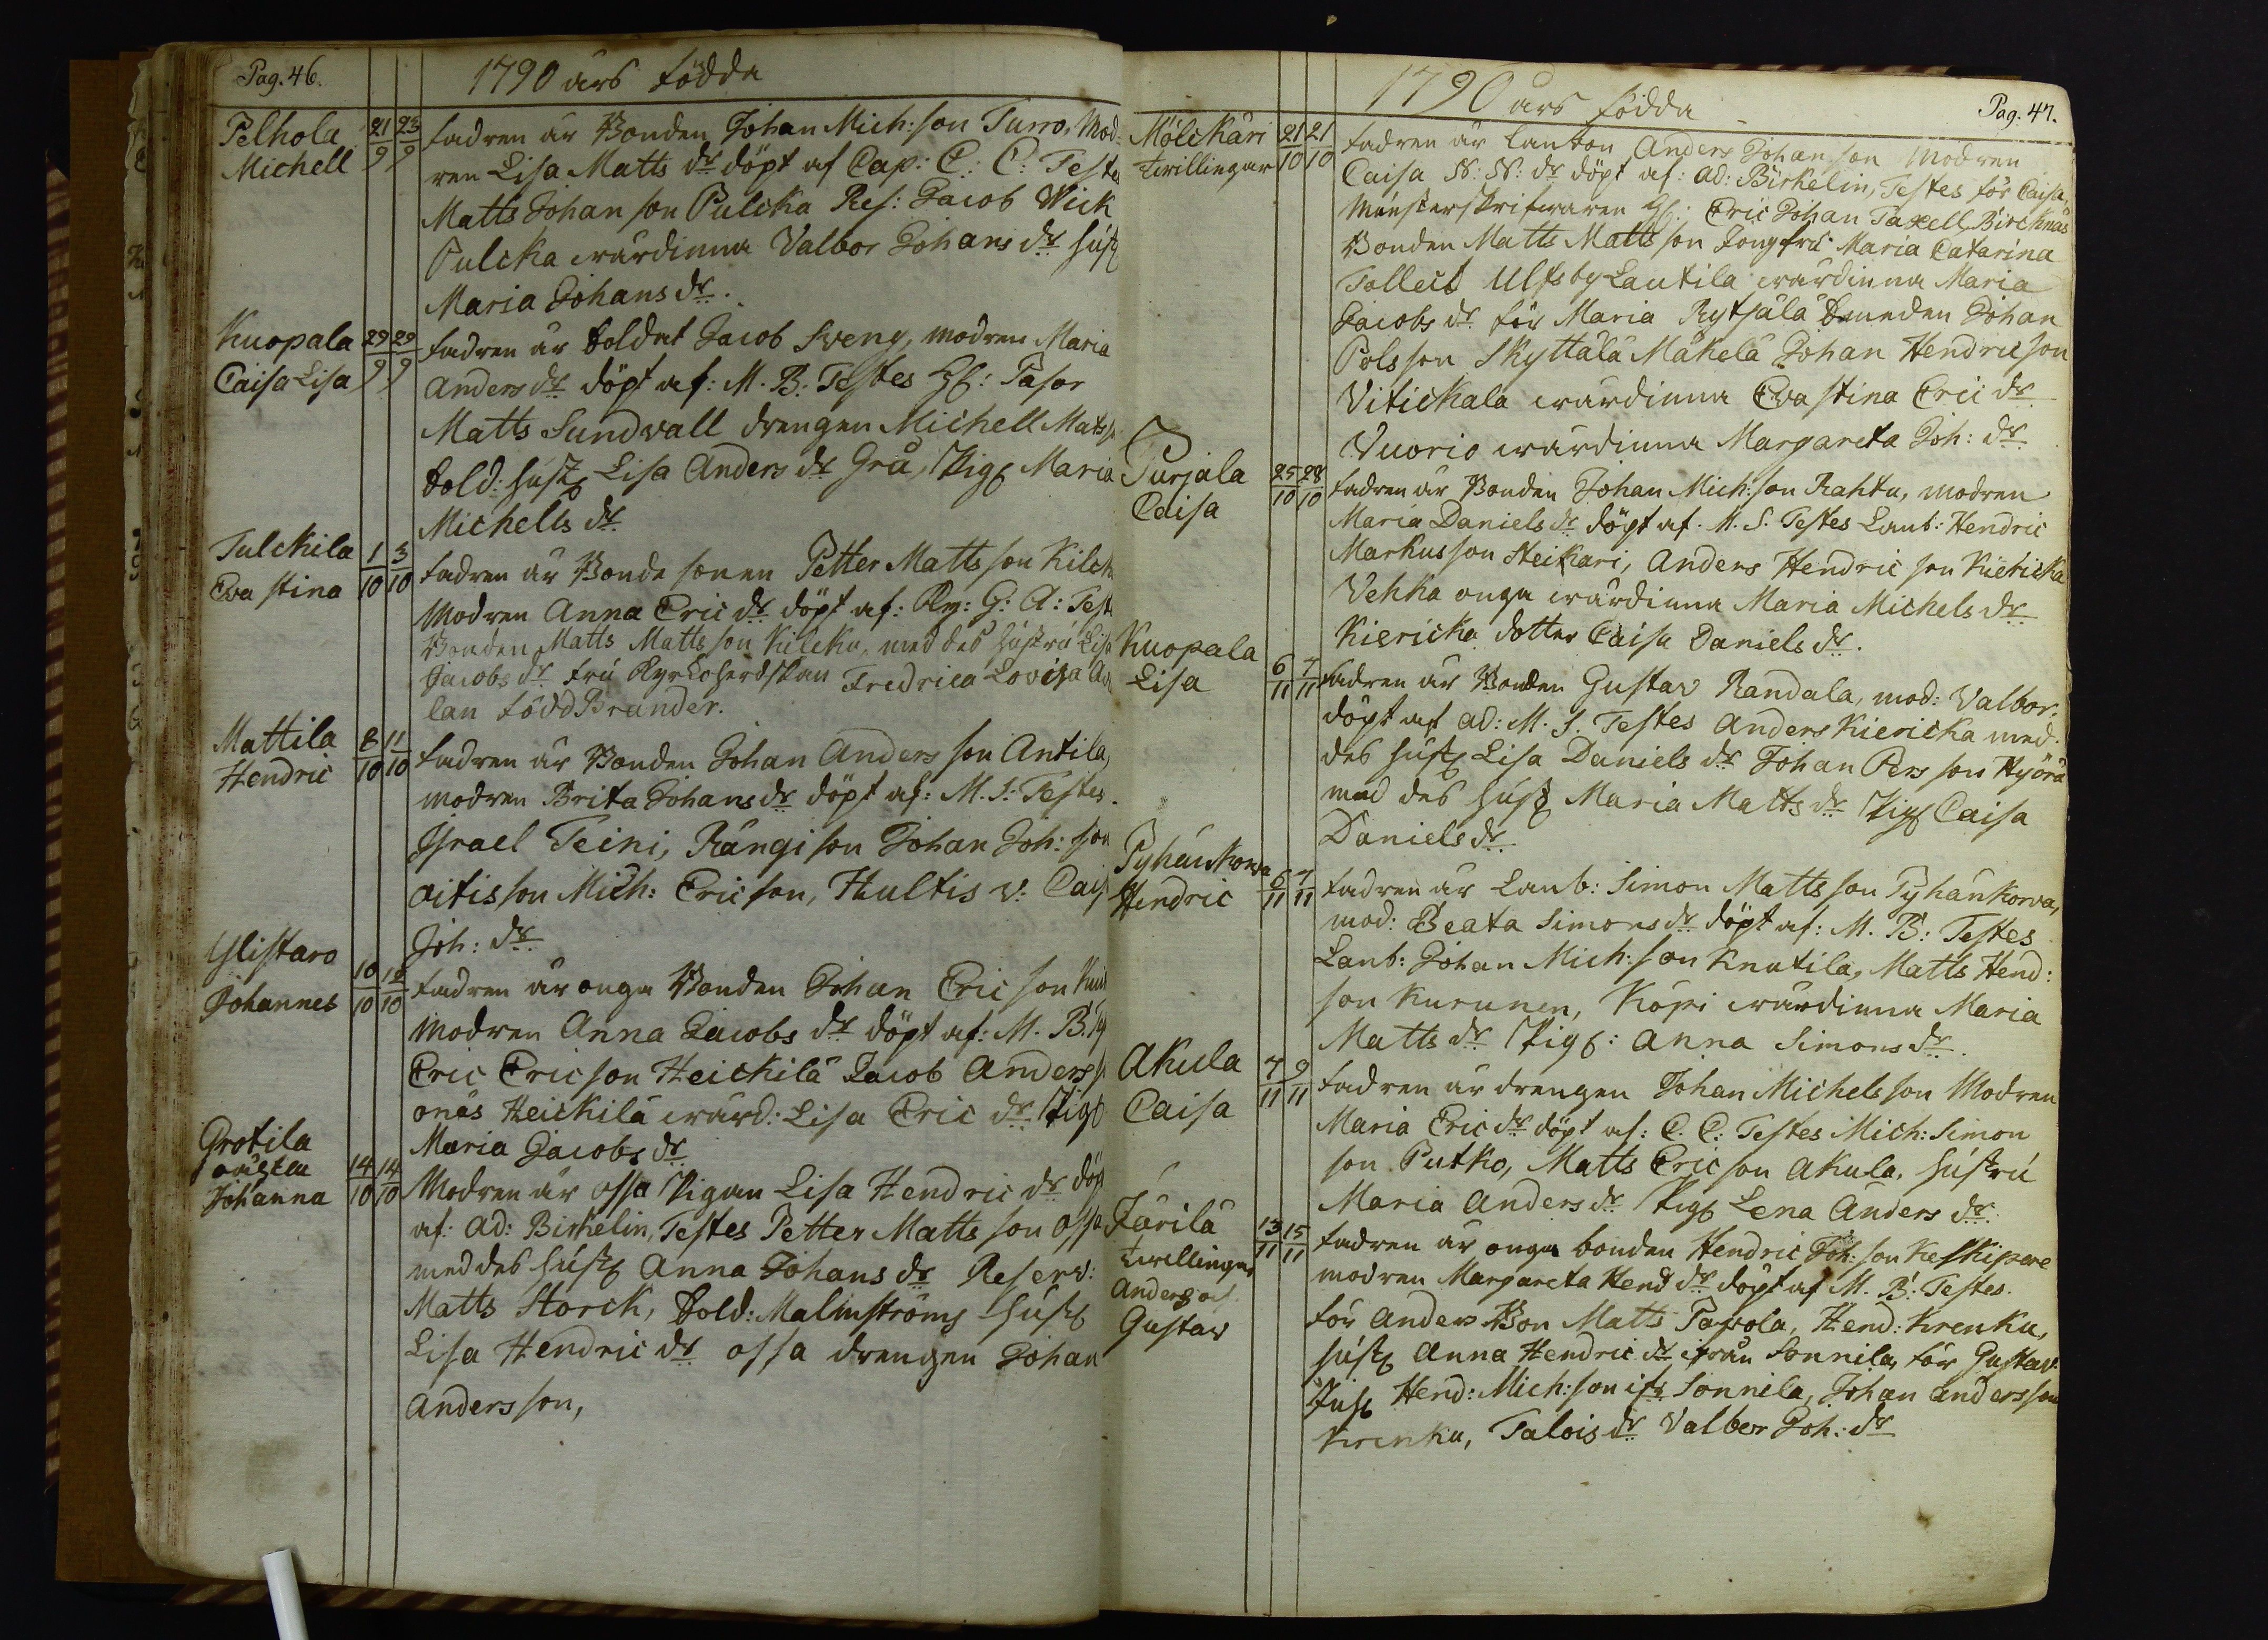 Pag. 46.
1790 års födda
Pelhola 21/9 23/9 fadren är Bonden Johan Mich: son Turro, Mod-
Michell ren Lisa Matts dr döpt af Cap: C: C: Testes
Matts Johan son Pulcka Res: Jacob Wick
Pulcka wärdinna Valbor Johans dr hust
Maria Johans dr.
Kuopala 29/9 29/9 fadren är Soldat Jacob Sveng, modren Maria
Caisa Lisa Anders dr döpt af: M. B: Testes Hl: Pasor
Matts Sundvall drengen Michell Mats s
Sold: hust Lisa Anders dr Grå, Pig Maria
Michells dr
Tulckila 1/10 3/10 fadren är Bonde sonen Petter Matts son Kilck
Eva stina modren Anna Eric dr döpt af: Ky: G: A: Test
Bonden Matts Matts son Kilcku, med des hustru Lisa
Jacobs dr fru Kyrkoherdskan Fredrica Lovisa A
lan född Brander.
Mattila 8/10 11/10 fadren är Bonden Johan Anders son Antila,
Hendric modren Brita Johans dr döpt af: M. S: Testes.
Israel Teini, Rångi son Johan Joh: son
aitis son Mich: Eric son, Hultis v: Cais
Joh: dr
Ylistaro
Johannes 10/10 12/10 fadren är onga Bonden Johan Eric son
modren Anna Jacobs dr döpt af: M. B:
Eric Eric son Heickilä Jacob Anders s
onäs Heickilä wärd: Lisa Eric dr Pig
Maria Jacobs dr
Grotila
oägta
Johanna 14/10 14/10 Modren är ossa Pigan Lisa Hendric dr döp
af: ad: Birkelin, Testes Petter Matts son ossa
med des hust Anna Johans dr Reserv:
Matts Storck, Sold: Malmströms hust
Lisa Hendric dr ossa drengen Johan
Anders son,
1790 års födda
Pag. 47.
Mölckäri 21/10 21/10 fadren är Lanbon Anders Johan son modren
twillingar Caisa N: N: dr döpt af: ad: Birkelin, Testes för Caisa,
Mönsterskrifwaren H: Eric Johan Taxell Bircknäs
Bonden Matts Matts son Jongfru Maria Catarina
Tollett Ulfsby Lautila wärdinna Maria
Jacobs dr för Maria Rytsälä Bonden Johan
Pols son Skyttälä Mäkelä Johan Hendric son
Vitickala wärdinna Eva stina Eric dr
Vuorio wärdinna Margareta Joh: dr
Purjala 25/10 28/10 fadren är Bonden Johan Mich: son Rahtu, modren
Caisa Maria Daniels dr döpt af. M. S. Testes Lanb: Hendric
Markus son Steikari, Anders Hendric son Kiericka
Vekka onga wärdinna Maria Michels dr
Kiericka dotter Caisa Daniels dr.
Kuopala
Lisa 6/11 7/11 fadren är Bonden Gustav Randala, mod: Valbor.
döpt af ad: M. S. Testes Anders Kiericka med
des hust Lisa Daniels dr Johan Pers son Hyörä
med des hust Maria Matts dr Pig Caisa
Daniels dr
Pyhänkorva
Hendric 6/11 7/11 fadren är Lanb: Simon Matts son Pyhänkorva,
mod: Beata Simons dr döpt af: M. B: Testes
Lanb: Johan Mich: son Knutila, Matts Hend:
son Kurunen, Köpi wärdinna Maria
Matts dr Pig: Anna Simons dr.
Akula 7/11 9/11 fadren är drengen Johan Michels son Modren
Caisa Maria Eric dr döpt af: C. C: Testes Mich: Simon
son Putko, Matts Eric son Akula, hustru
Maria Anders dr Pig Lena Anders dr.
Järilä 13/11 15/11 fadren är onga bonden Hendric Joh: son Keskipere
twillingar modren Margareta Hend dr döpt af M. B: Testes.
Anders och för Anders Bon Matts Pavola, Hend: Krenku,
Gustav hust Anna Hendric dr ifrån Sonnila, för Gustav:
Jus Hend: Mich: son ifr Sonnila, Johan Anders son
Krenku, Talois dr Valber Joh: dr